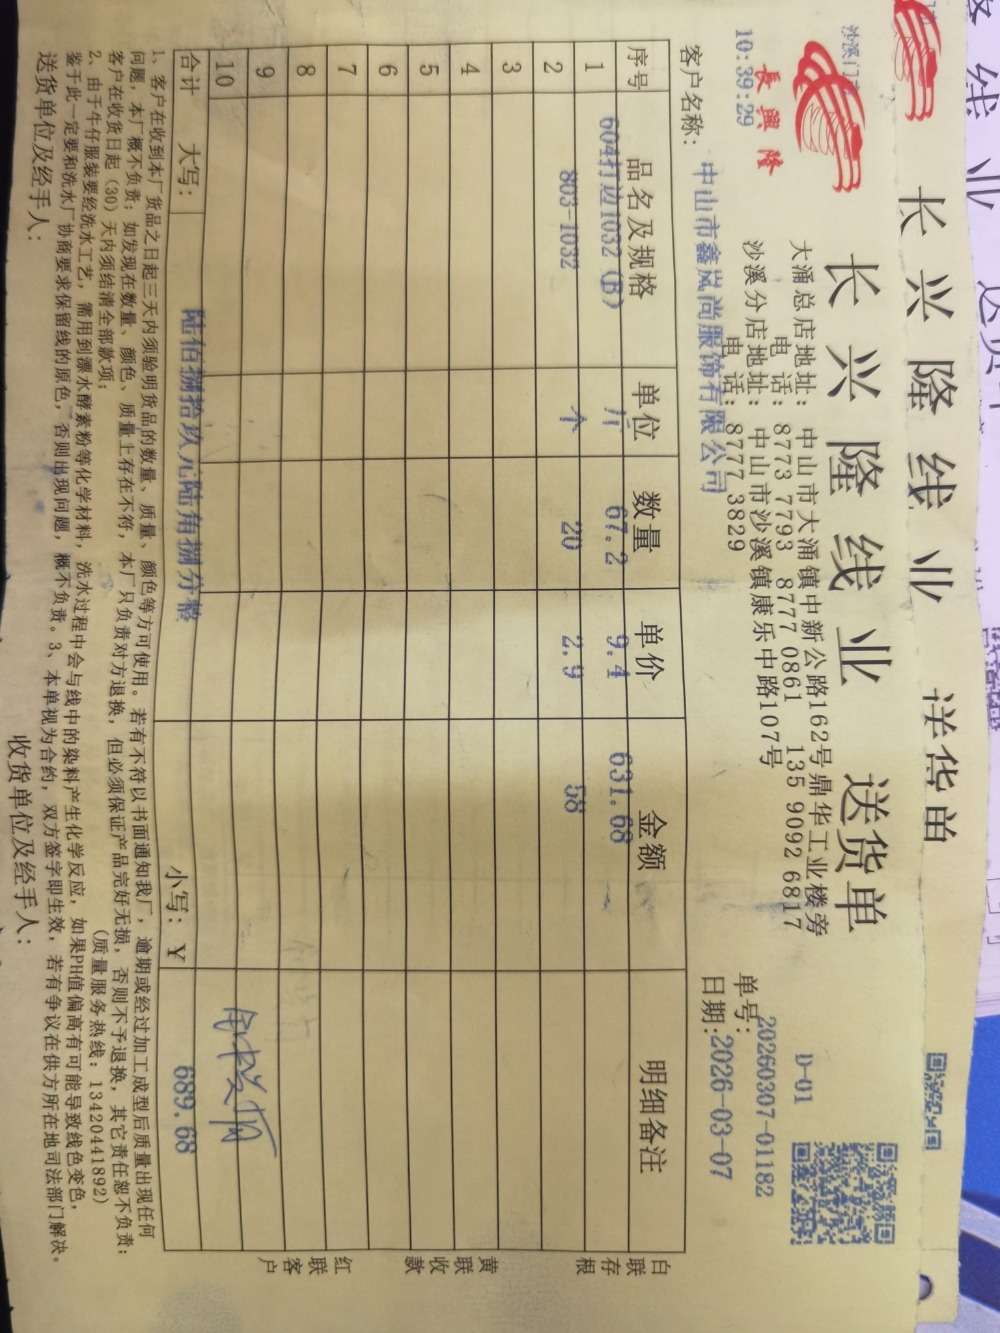 长兴隆线业 送货单
长兴隆线业 送货单
長興隆
大涌总店地址：中山市大涌镇中新公路162号鼎华工业楼旁
电话：8773 7793 8777 0861 135 9092 6817
沙溪分店地址：中山市沙溪镇康乐中路107号
电话：8777 3829
沙溪门
10:39:29
D-01
单号：20260307-01182
客户名称：中山市鑫岚尚服饰有限公司
日期：2026-03-07
序号 品名及规格 单位 数量 单价 金额 明细备注
1 604打边1032（B） 斤 67.2 9.4 631.68
2 803-1032 个 20 2.9 58
3
4
5
6
7
8
9
10
合计 大写：陆佰捌拾玖元陆角捌分整 小写：￥ 689.68
1、客户在收到本厂货品之日起三天内须验明货品的数量、质量、颜色等方可使用。若有不符以书面通知我厂，逾期或经过加工成型后质量出现任何
问题，本厂概不负责；如发现在数量、颜色、质量上存在不符，本厂只负责对方退换，但必须保证产品完好无损，否则不予退换，其它责任恕不负责；
客户在收货日起（30）天内须结清全部款项；
（质量服务热线：13420441892）
2、由于牛仔服装要经洗水工艺，需用到漂水酵素粉等化学材料，洗水过程中会与线中的染料产生化学反应，如果PH值偏高有可能导致线色变色，
鉴于此一定要和洗水厂协商要求保留线的原色，否则出现问题，概不负责。3、本单视为合约，双方签字即生效，若有争议在供方所在地司法部门解决。
送货单位及经手人： 收货单位及经手人：
白联存根
黄联收款
红联客户